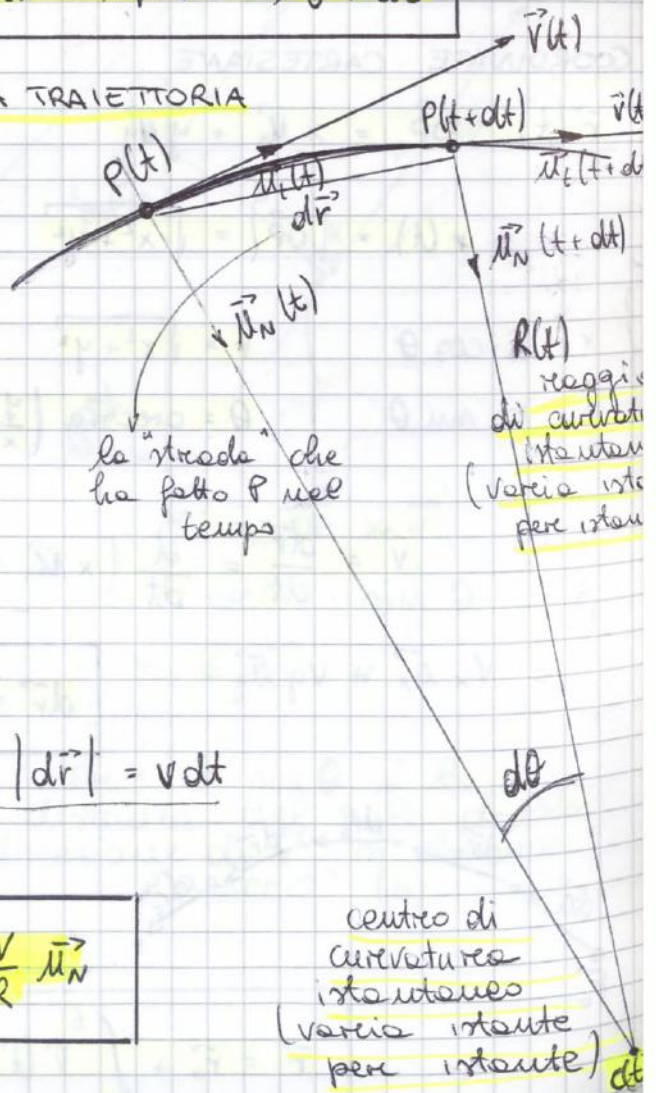 A TRAIETTORIA
v⃗(t)
P(t)
P(t+dt)
v⃗(t
μ⃗t(t)
μ⃗t(t+d
dr⃗
μ⃗N(t)
μ⃗N(t+dt)
R(t)
raggi
di curvat
istantan
(varia ist
per istan
la "strada" che
ha fatto P nel
tempo
|dr⃗| = v dt
dθ
μ⃗N
centro di
curvatura
istantaneo
(varia istante
per istante)
dt